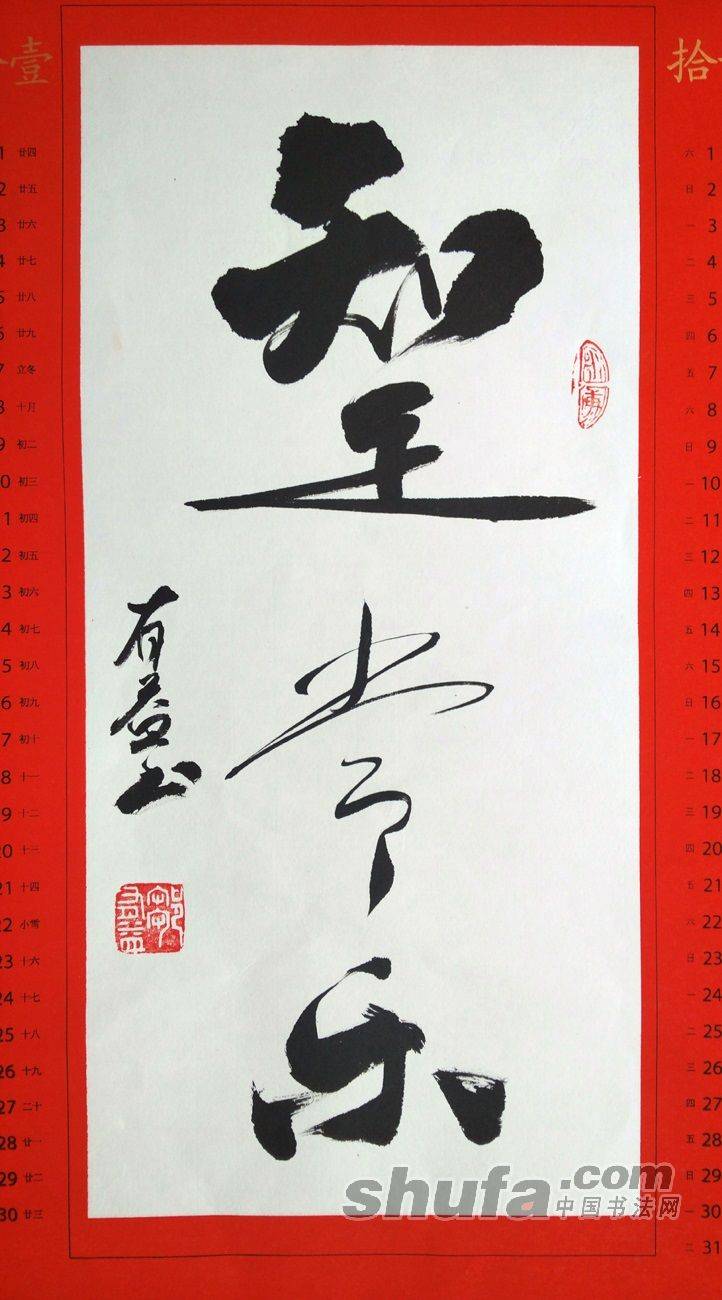 知足常乐
有益书
壹
1 廿四
2 廿五
3 廿六
4 廿七
5 廿八
6 廿九
7 立冬
8 十月
9 初二
10 初三
11 初四
12 初五
13 初六
14 初七
15 初八
16 初九
17 初十
18 十一
19 十二
20 十三
21 十四
22 小雪
23 十六
24 十七
25 十八
26 十九
27 二十
28 廿一
29 廿二
30 廿三
拾
六 1
日 2
一 3
二 4
三 5
四 6
五 7
六 8
日 9
一 10
二 11
三 12
四 13
五 14
六 15
日 16
一 17
二 18
三 19
四 20
五 21
六 22
日 23
一 24
二 25
三 26
四 27
五 28
日 29
一 30
二 31
shufa.com
中国书法网